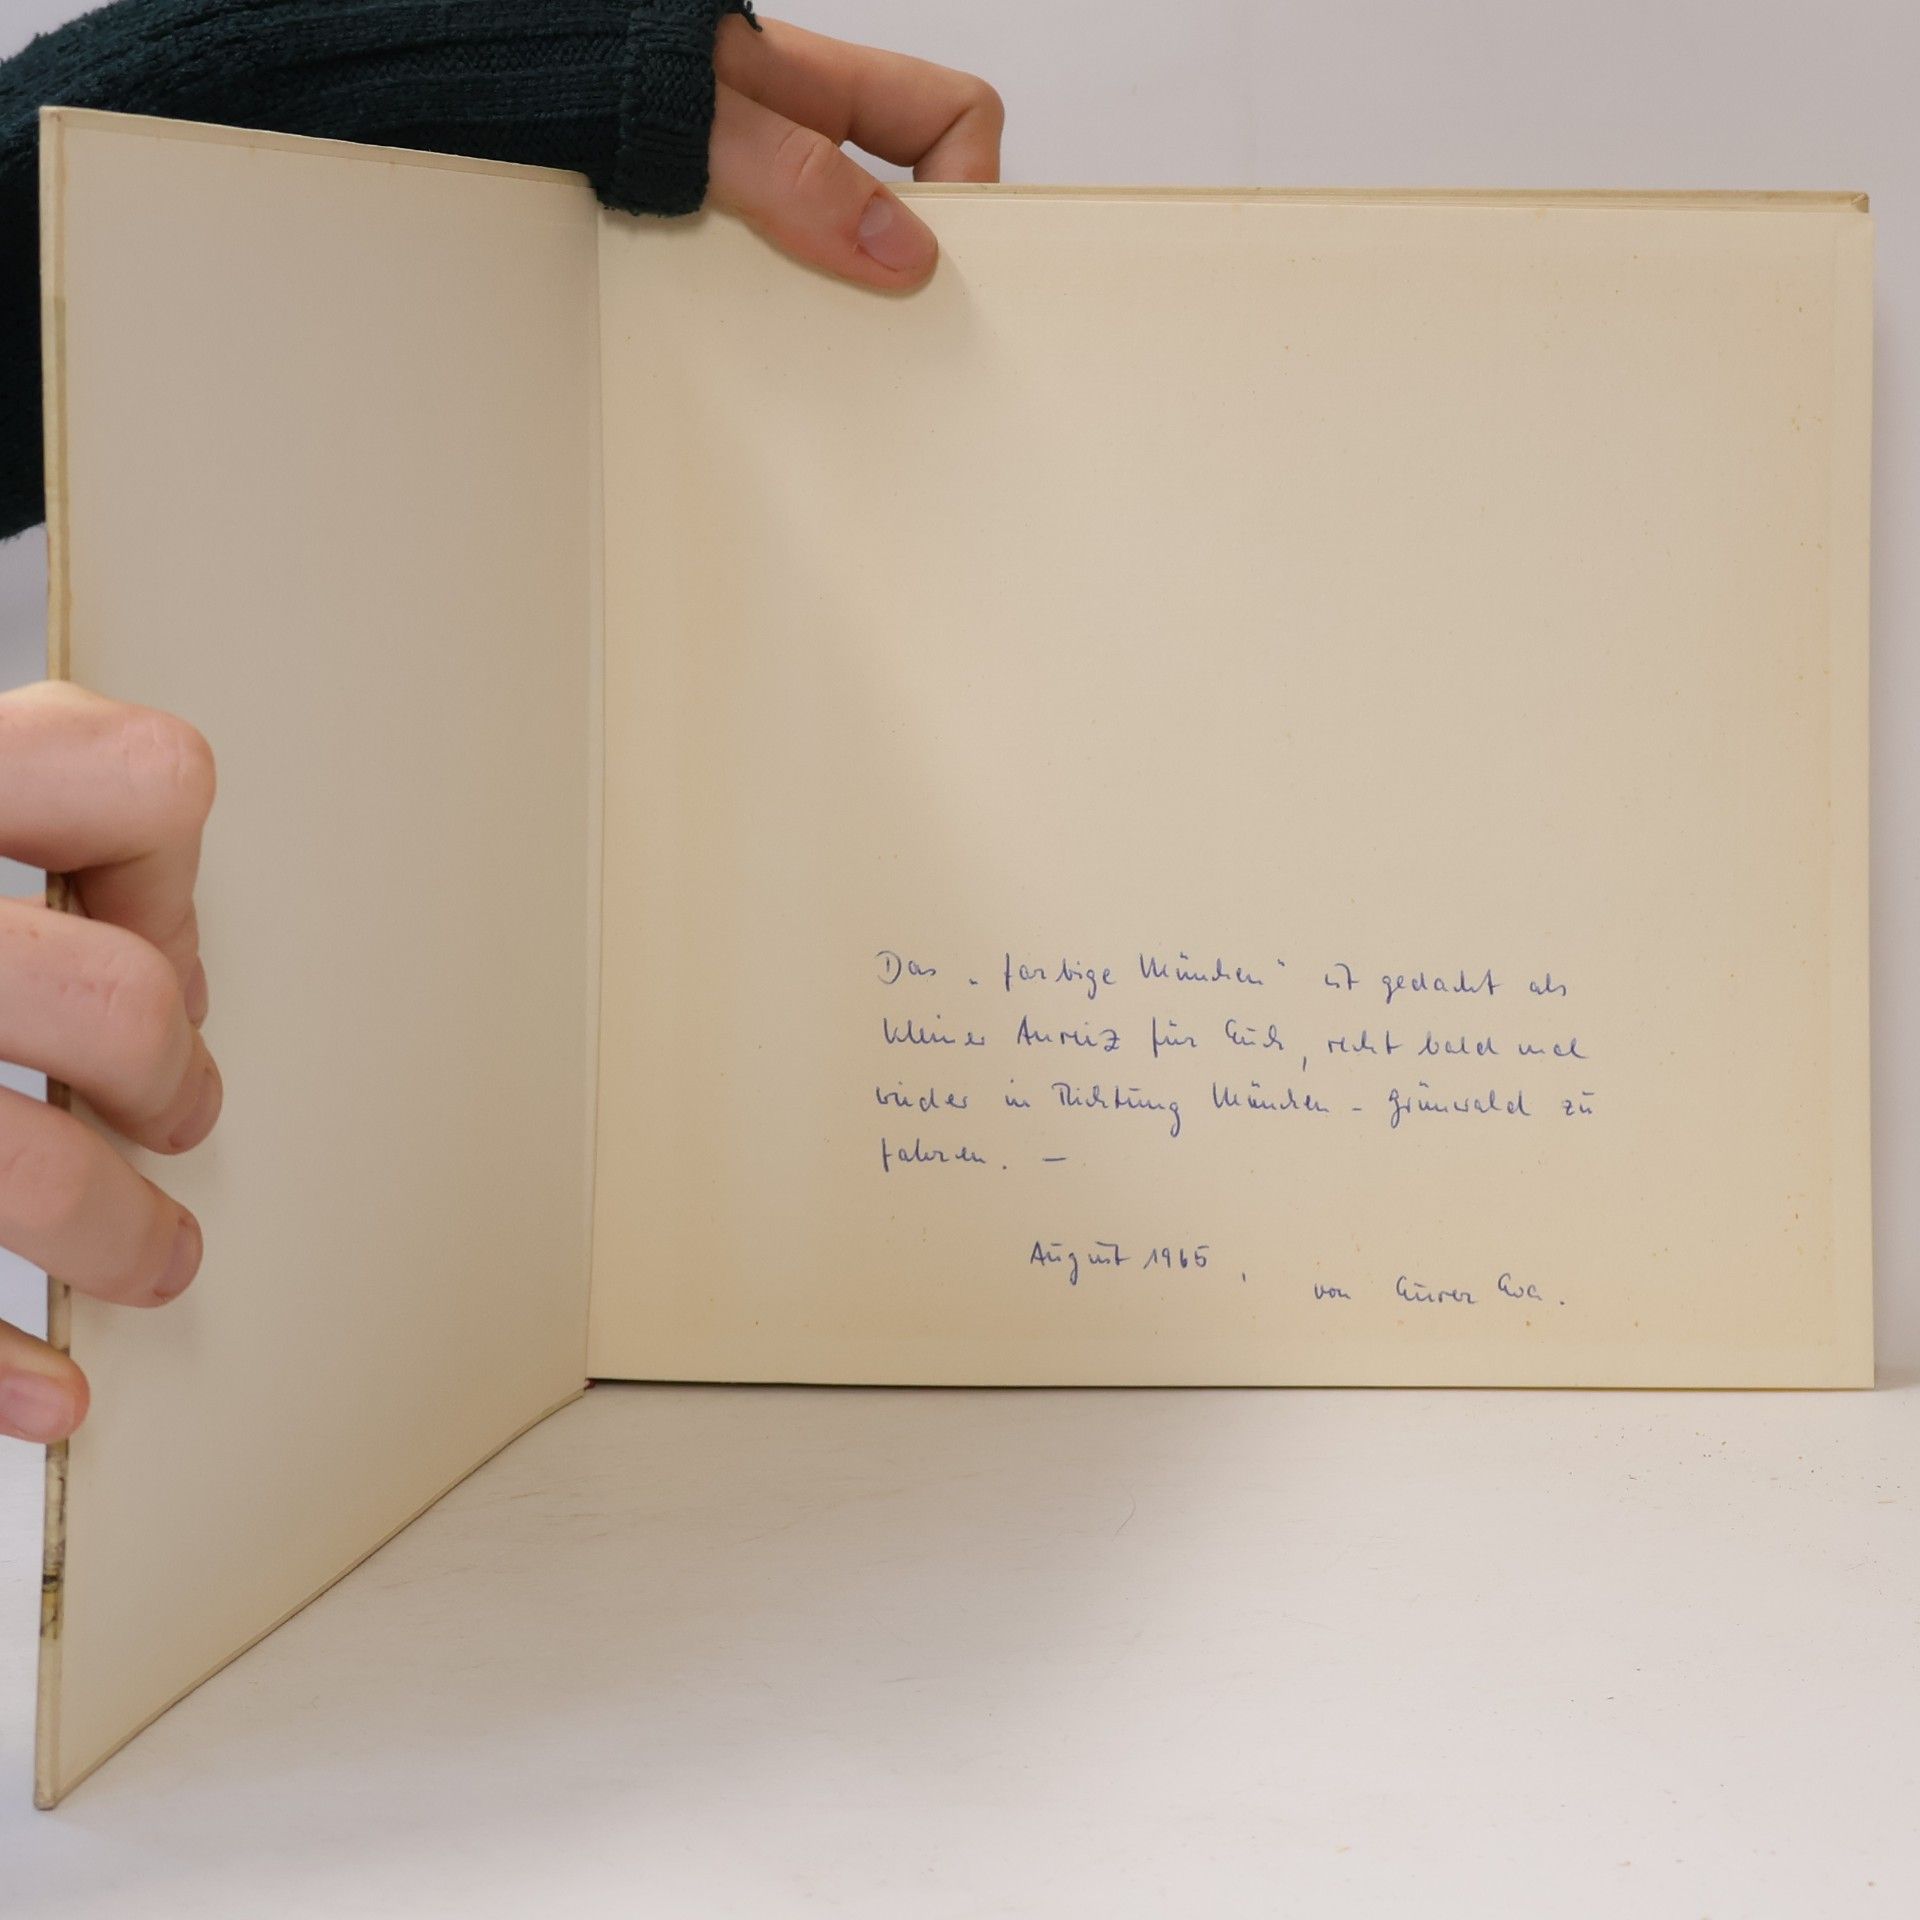 Das „farbige München“ ist gedacht als
kleiner Anreiz für Euch, recht bald mal
wieder in Richtung München - Grünwald zu
fahren. —
August 1965, von Eurer Eva.